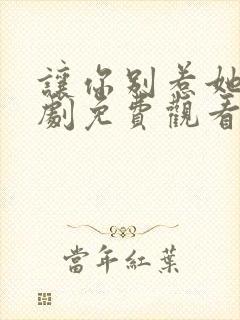 讓你別惹她
劇免費觀看
當年紅葉